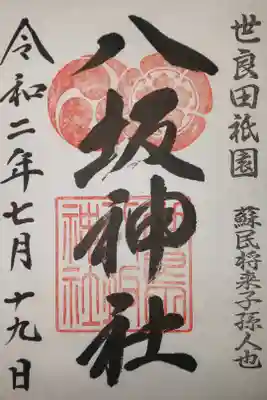 世良田祇園
蘇民将来子孫人也
八坂神社
令和二年七月十九日